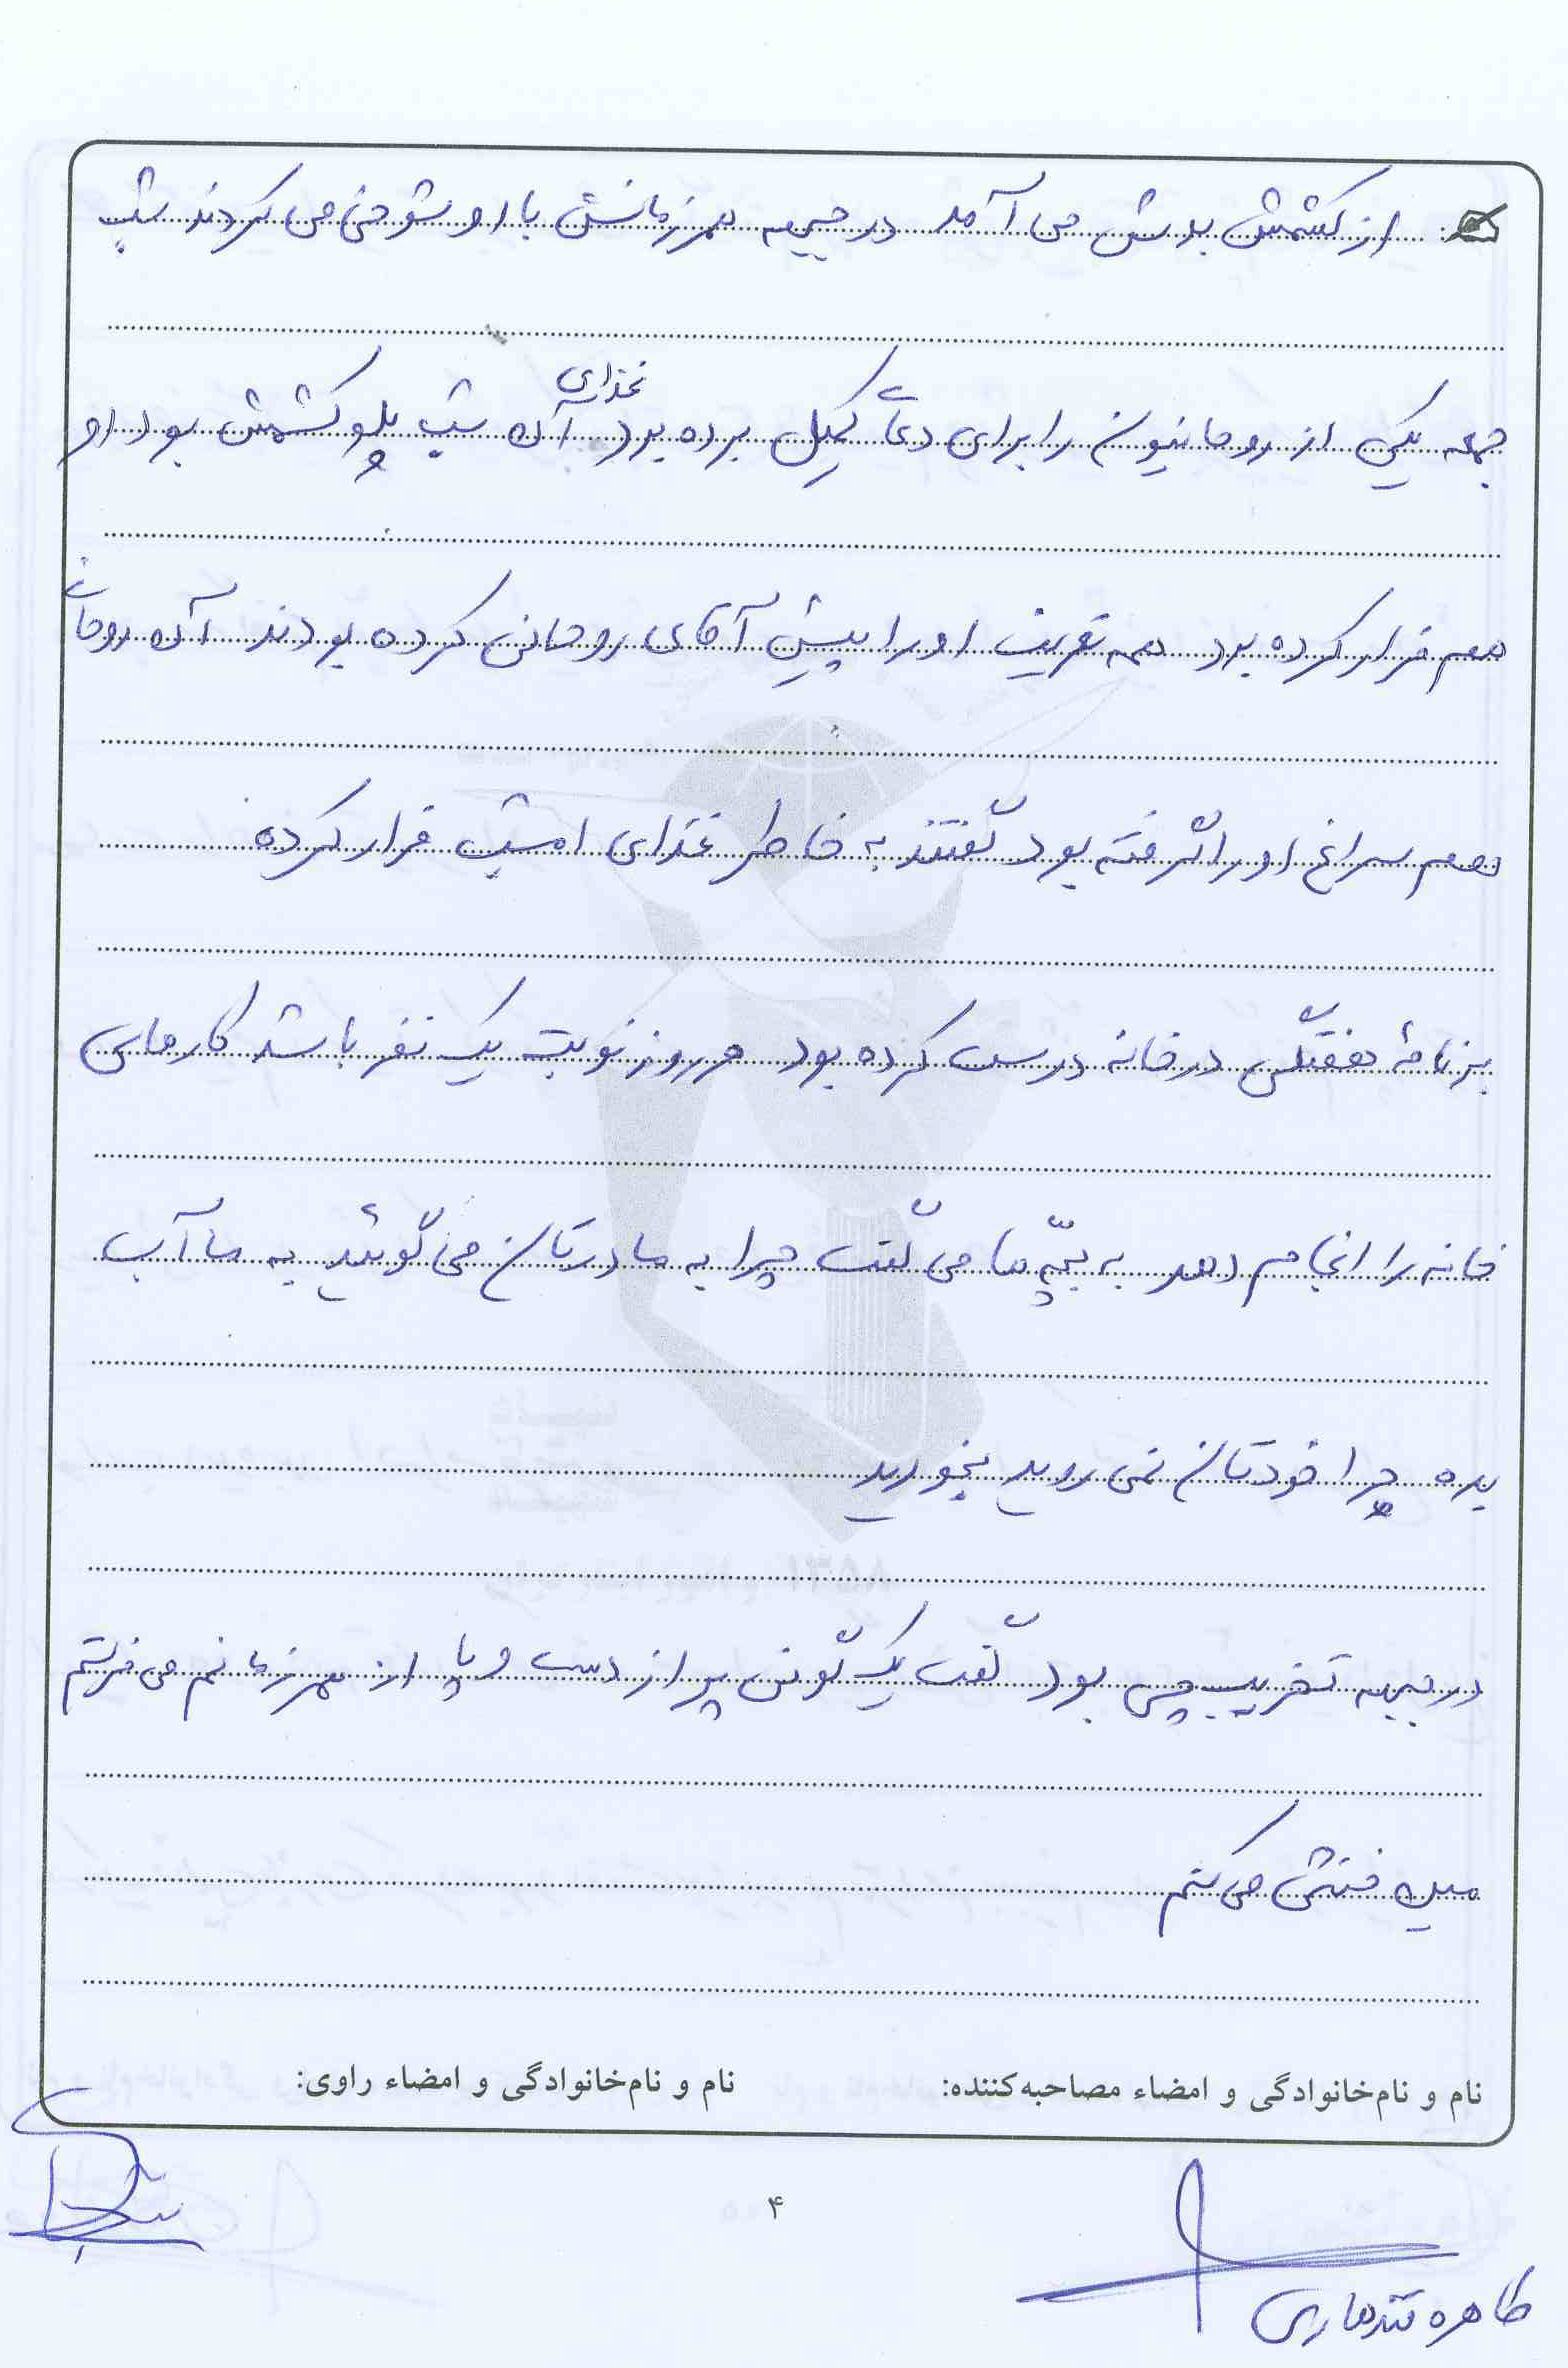 از کشمش بدش می آمد در جبهه همرزمانش با او شوخی می کردند شب
جمعه یکی از روحانیون را برای دعای کمیل برده بود غذای آن شب پلو کشمش بود او
هم فرار کرده بود همه تعریف او را پیش آقای روحانی کرده بودند آن روحانی
هم سراغ او را گرفته بود گفتند به خاطر غذای امشب فرار کرده
برنامهٔ هفتگی در خانه درست کرده بود هر روز نوبت یک نفر باشد کارهای
خانه را انجام دهد به بچّه ها می گفت چرا به مادرتان می گوئید به ما آب
بده چرا خودتان نمی روید بخورید
در جبهه تخریب چی بود گفت یک گونی پر از دست و پا از همرزمانم می فرستم
مین خنثی می کنم
نام و نام‌خانوادگی و امضاء مصاحبه‌کننده:
نام و نام‌خانوادگی و امضاء راوی:
۴
طاهره قندهاری